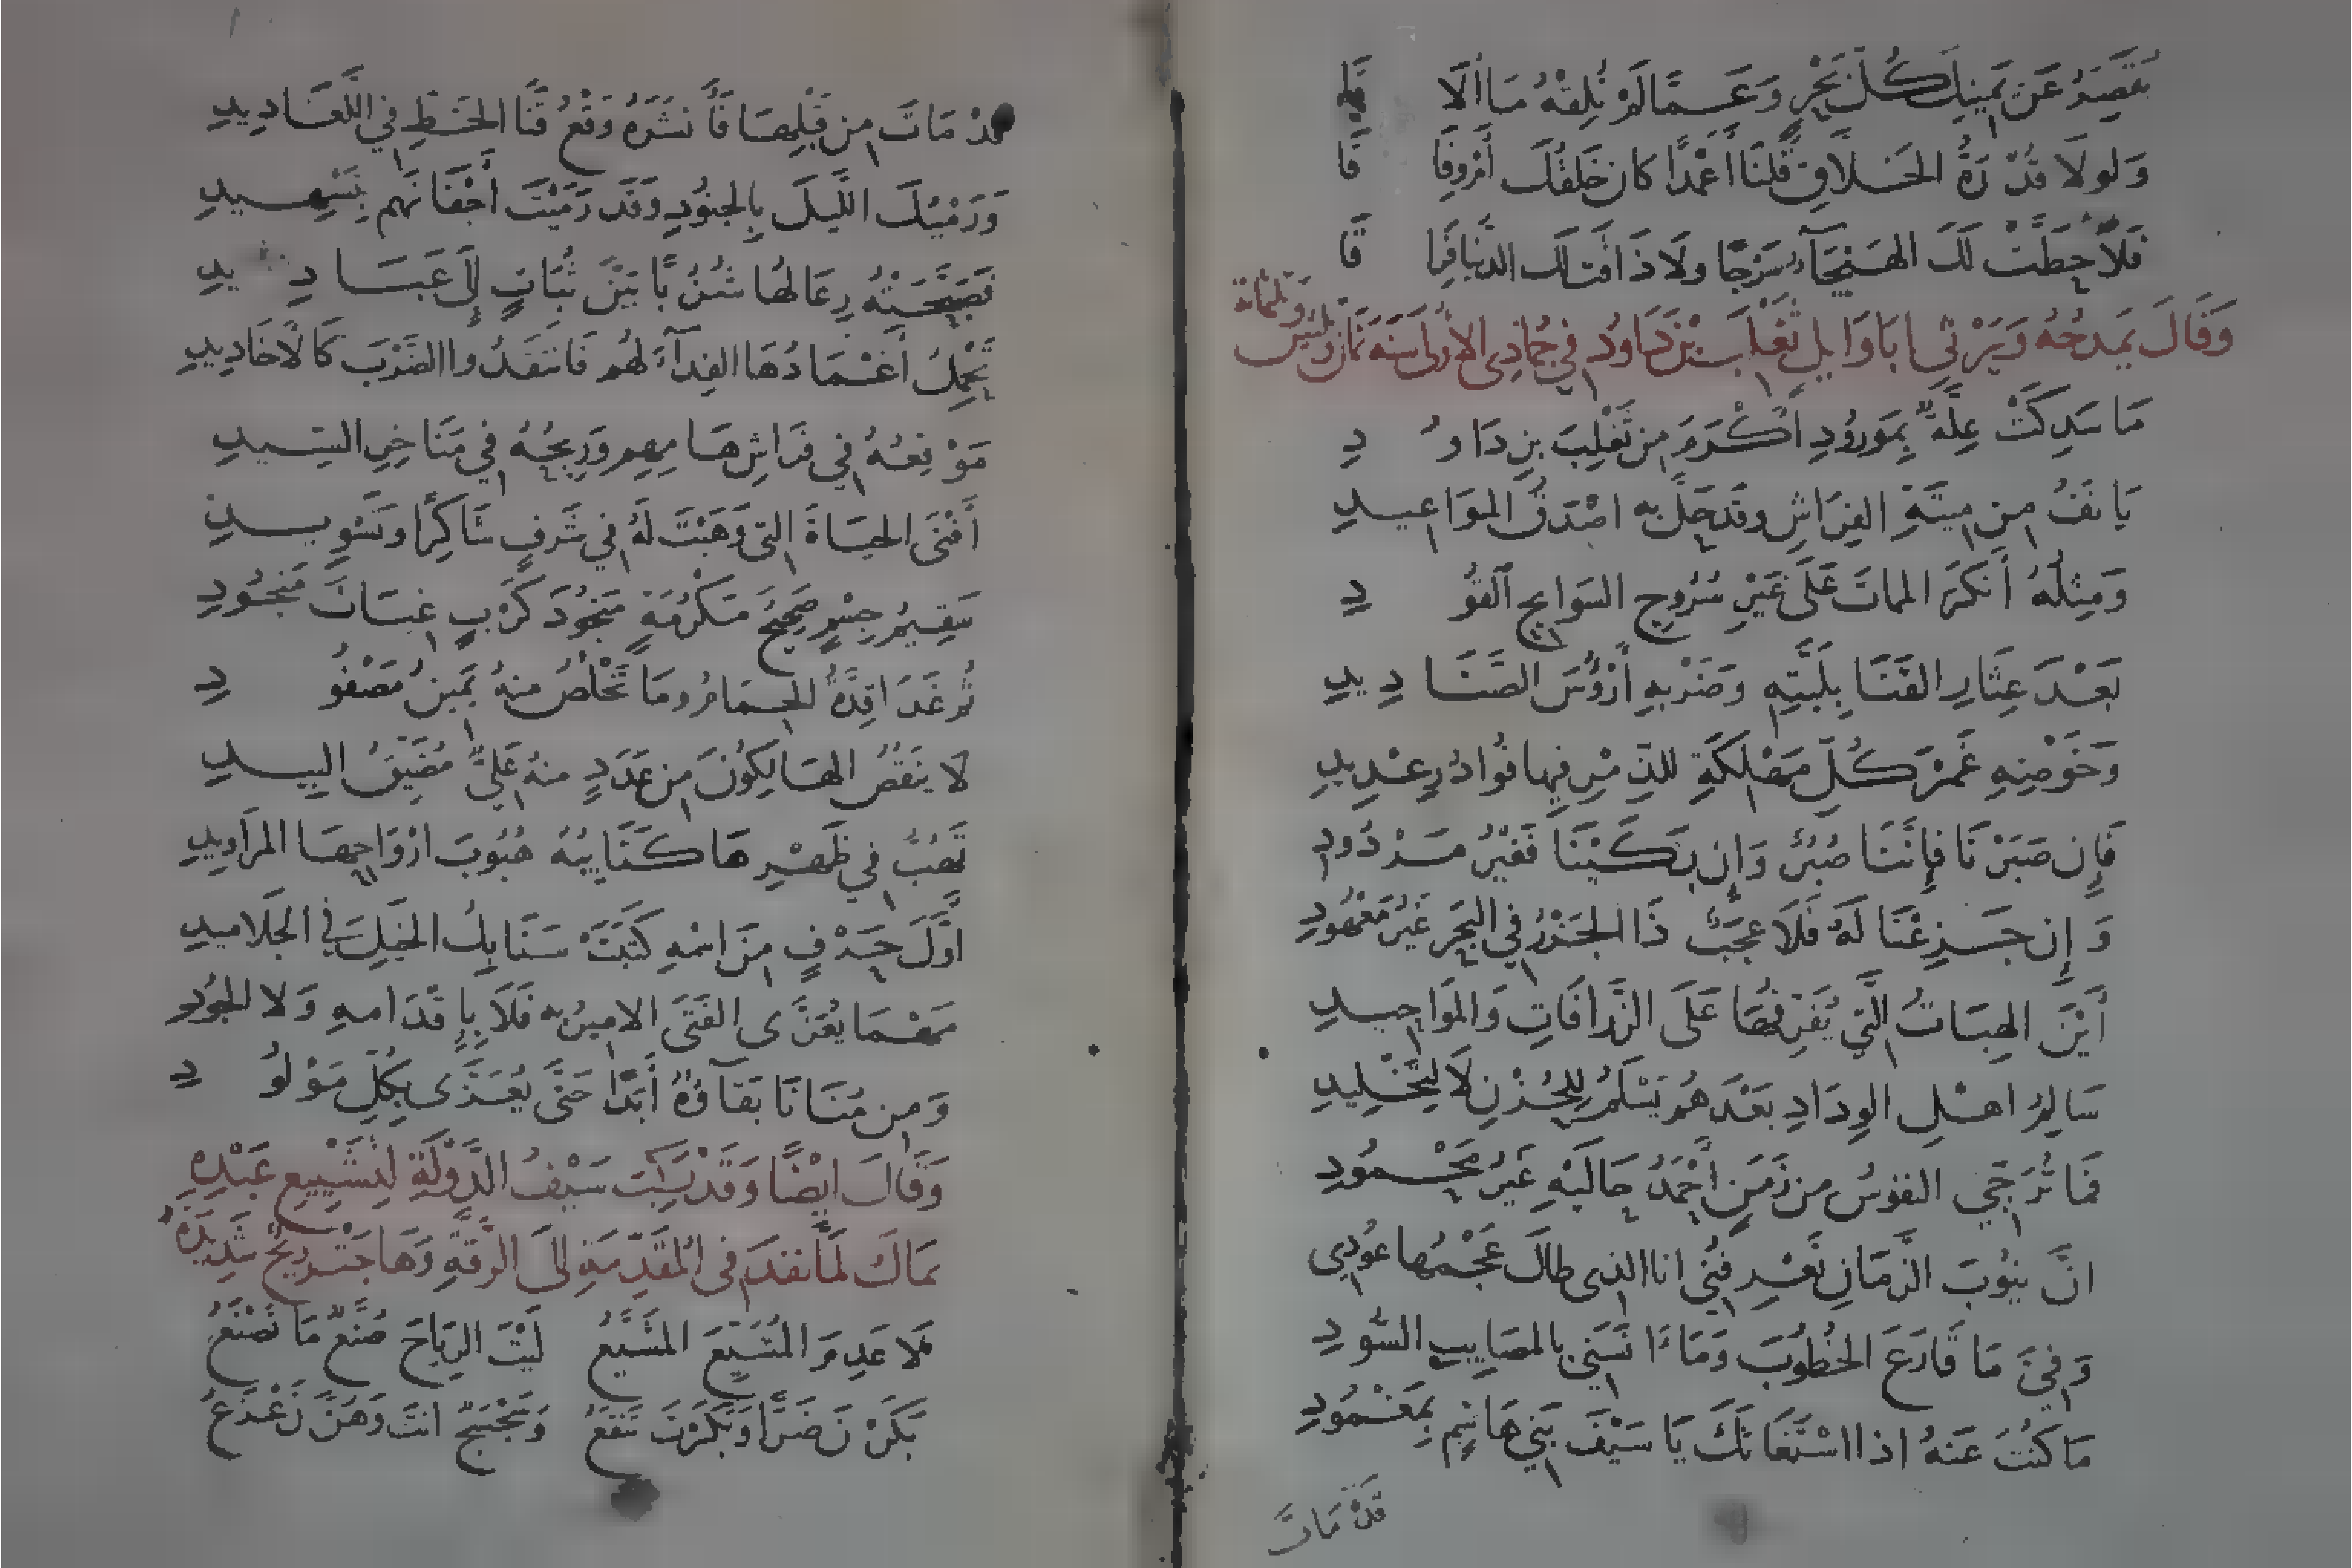 يُقَصِّرُ عَنْ يَمِينِكَ كُلُّ بَحْرٍ وَعَمَّا لَمْ تُلِقْهُ مَا أَلَا قَا
وَلَولَا قُدْرَةُ الخَلَّاقِ قُلنَا أَعَمْدًا كان خَلقُكَ أَمْ وِفَا قَا
فَلَا حَطَّتْ لَكَ الهَيْجَآءُ سَرْجًا ولَا ذَاقَت لَكَ الدُّنيَا فِرَا قَا
وَقَالَ يَمدَحُهُ وَيَرْثي ابَا وَايلٍ تَغْلِبَ بْنَ دَاوُد فِي جُمَادِى الاوْلى سَنَه ثَمَانٍ وَثلثين وَثلثمائة
مَا سَدِكَتْ عِلَّةٌ بِمَورُودِ أَكْرَمَ مِن تَغْلِبَ بنِ دَاوُ دِ
يَانَفُ مِن مِيتَةِ الفِرَاشِ وقَد حَلَّ بِه اصْدَقُ المَوَاعيدِ
وَمِثلُهُ أَنكَرَ المماتَ عَلَى غَيْرِ سُرُوجِ السَوابِحِ القُو دِ
بَعْدَ عِثَارِ القَنَا بِلَبَّتِهِ وضَرْبِهِ أَرْؤُسَ الصَّنَا دِيدِ
وَخَوْضِهِ غَمْرَ كُلِّ مَهْلَكَةٍ للذِّمْرِ فِيها فُوادُ رِعْدِيدِ
فَإِن صَبَرْنَا فَإِنَّنَا صُبُرٌ وَإِن بَكَيْنَا فَغَيْرُ مَرْدُودِ
وَإِن جَزِعْنَا لَهُ فَلَا عجَبٌ ذَا الجَزْرُ فِي البَحْرِ غَيْرُ مَعْهُودِ
أَيْنَ الهِبَاتُ الَّتِي يُفَرِّقُهَا عَلَى الزَّرَافَاتِ وَالمَوَاحِيدِ
سَالِمُ اهْلِ الوِدَادِ بَعْدَهُم يَسْلَمُ لِلحُزْنِ لَا لِتَخْلِيدِ
فَمَا تُرَجِّي النفوسُ من زَمَنٍ أَحْمَدُ حَالَيْهِ غَيْرُ مَحْمُودِ
انَّ نيُوبَ الزمَانِ تَعْرِفُنِي انا الذى طالَ عَجْمُها عُودِي
وَفِيَّ مَا قَارَعَ الخُطُوبَ وَمَا ءَانَسَنِي بالمصَايبِ السُّودِ
مَا كُنْتَ عَنهُ اذا اسْتَغَاثَكَ يَا سَيْفَ بَنِي هَاشِمٍ بِمَغْمُودِ
قَدْ مَاتَ
قَدْ مَاتَ مِن قَبْلِهَا فَأَنشَرَهُ وَقْعُ قَنَا الخَطِّ فِي اللَّغَادِيدِ
وَرَمْيُكَ اللَّيلَ بِالجنُودِ وَقَد رَمَيْتَ أَجْفَانَهم بِتَسْهِيدِ
فَصَبَّحَتْهُ رِعَالُهَا شُزَّبًا بَيْنَ ثُبَاتٍ إِلَى عَبَا دِيدِ
تَحْمِلُ أَغْمَادُهَا الفِدآءَ لهُم فَانتَقَدُوا الضَّرْبَ كَالأَخَادِيدِ
مَوْقِعُهُ فِي فَرَاشِ هَامِهِم وَرِيحُهُ فِي مَنَاخِرِ السِّيدِ
أَفْنَى الحيَاةَ التِى وَهَبْتَ لَهُ فِي شَرَفٍ شَاكِرًا وتَسْوِيدِ
سَقِيمُ جِسْمٍ صَحِيحُ مَكْرُمَةٍ مَنجُودَ كَرْبٍ غِيَاثَ مَنْجُودِ
ثُم غَدَا قِدَّهُ الحِمَامُ ومَا تَخْلُصُ منهُ يَمِينُ مَصْفُو دِ
لَا يَنقُصُ الهَالِكُونَ مِن عَدَدٍ منهُ عَلِيٌّ مُضَيِّقُ البِيدِ
تَهُبُّ فِي ظَهْرِهَا كَتَايِبُهُ هُبُوبَ ارْوَاحِهَا المَرَاوِيدِ
اوَّلَ حَرْفٍ مِنَ اسْمِهِ كتَبَتْ سَنَابِكُ الخَيلِ فِي الجَلَاميدِ
مَهْمَا يُعَزَّى الفَتَى الامِيرُ بِه فَلَا بِإِقْدَامِهِ وَلَا الجُودِ
وَمِن مُنَانَا بَقَآؤُهُ أَبَدًا حَتَّى يُعَزَّى بِكُلِّ مَوْلُو دِ
وَقَالَ ايْضًا وَقَدْ رَكِبَ سَيْفُ الدَّوْلَةِ لِتَشْيِيعِ عَبْدِهِ
يَمَاكَ لَمَّا نفَذَ فى المُقَدّمَةِ إلَى الرَّقَّةِ وَهَاجَتْ رِيحٌ شَدِيدَةٌ
لَا عَدِمَ المُشَيِّعَ المُشَيَّعُ لَيْتَ الرِيَاحَ صُنَّعٌ مَا تَصْنَعُ
بَكَرْنَ ضَرًّا وَبَكَرْتَ تَنفَعُ وَسَجْسَجٌ انتَ وَهُنَّ زَعْزَعُ